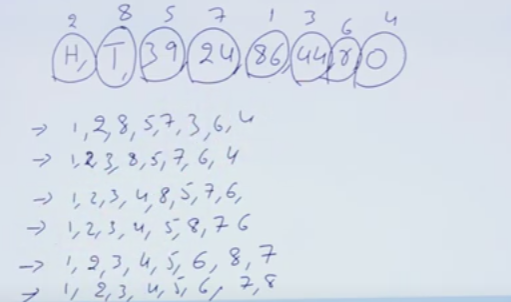 2 8 5 7 1 3 6 4
H, T, 39, 24, 86, 44, r, O
→ 1, 2, 8, 5, 7, 3, 6, 4
→ 1, 2 3, 8, 5, 7, 6, 4
→ 1, 2, 3, 4, 8, 5, 7, 6,
→ 1, 2, 3, 4, 5, 8, 7 6
→ 1, 2, 3, 4, 5, 6, 8, 7
→ 1, 2, 3, 4, 5, 6, 7, 8